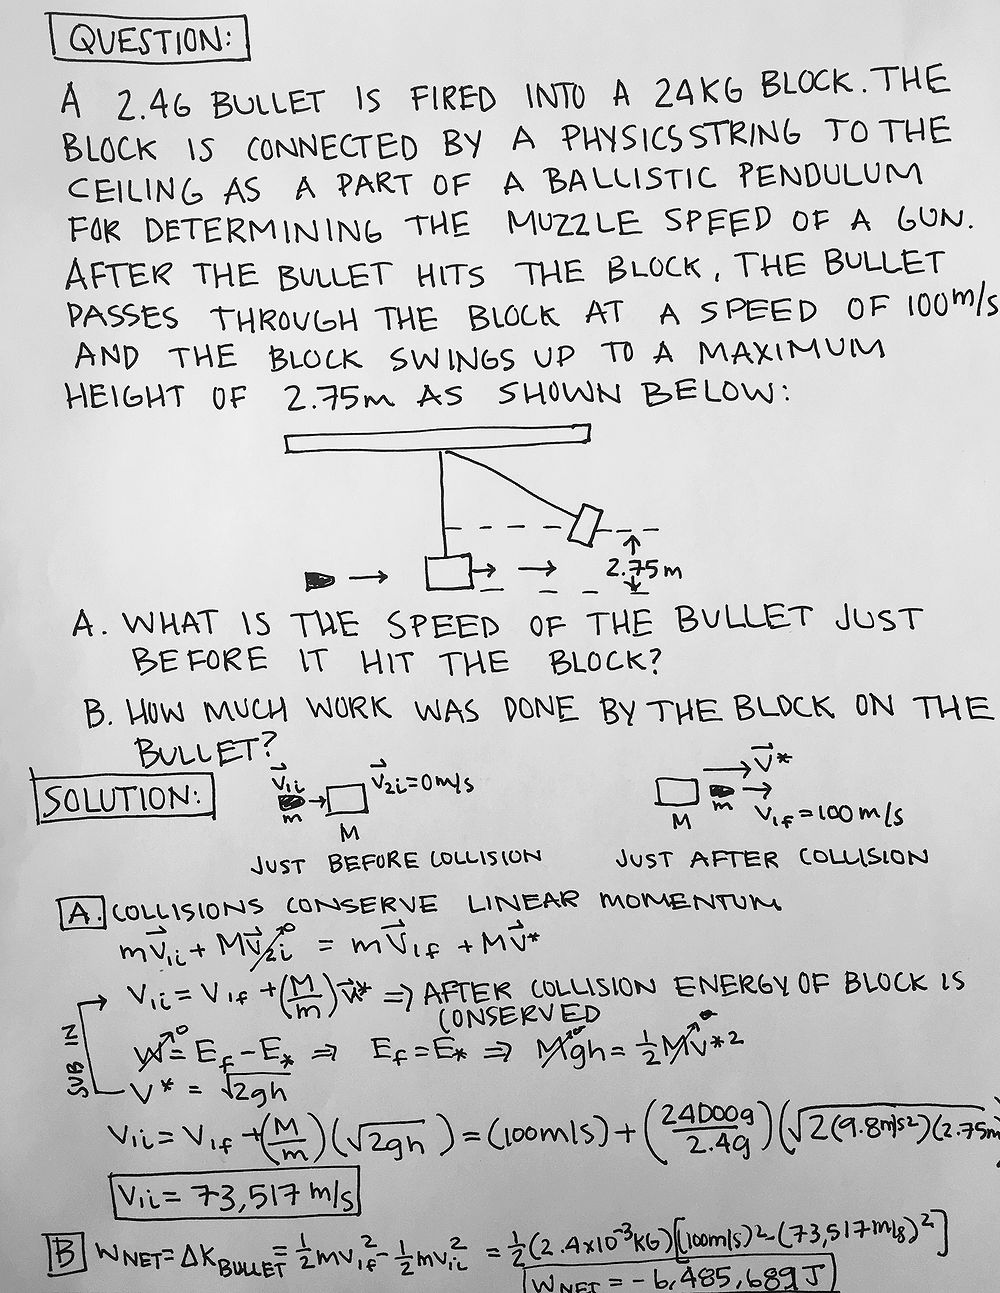 QUESTION:
A 2.4G BULLET IS FIRED INTO A 24KG BLOCK. THE
BLOCK IS CONNECTED BY A PHYSICS STRING TO THE
CEILING AS A PART OF A BALLISTIC PENDULUM
FOR DETERMINING THE MUZZLE SPEED OF A GUN.
AFTER THE BULLET HITS THE BLOCK, THE BULLET
PASSES THROUGH THE BLOCK AT A SPEED OF 100m/s
AND THE BLOCK SWINGS UP TO A MAXIMUM
HEIGHT OF 2.75m AS SHOWN BELOW:
2.75m
A. WHAT IS THE SPEED OF THE BULLET JUST
BEFORE IT HIT THE BLOCK?
B. HOW MUCH WORK WAS DONE BY THE BLOCK ON THE
BULLET?
SOLUTION:
V⃗₁ᵢ V⃗₂ᵢ=0m/s
m M
V⃗*
M m V₁f=100m/s
JUST BEFORE COLLISION JUST AFTER COLLISION
A. COLLISIONS CONSERVE LINEAR MOMENTUM
mV⃗₁ᵢ + MV⃗₂ᵢ⁰ = mV⃗₁f + MV⃗*
V₁ᵢ = V₁f + (M/m)V⃗* ⇒ AFTER COLLISION ENERGY OF BLOCK IS
CONSERVED
SUB IN
W⁰ = Ef - E* ⇒ Ef = E* ⇒ Mgh = ½Mv*²
V* = √2gh
V₁ᵢ = V₁f + (M/m)(√2gh) = (100m/s) + (24000g/2.4g)(√2(9.8m/s²)(2.75m)
V₁ᵢ = 73,517 m/s
B WNET = ΔKBULLET = ½mv₁f² - ½mv₁ᵢ² = ½(2.4x10⁻³KG)[(100m/s)² - (73,517m/s)²]
WNET = -6,485,689J